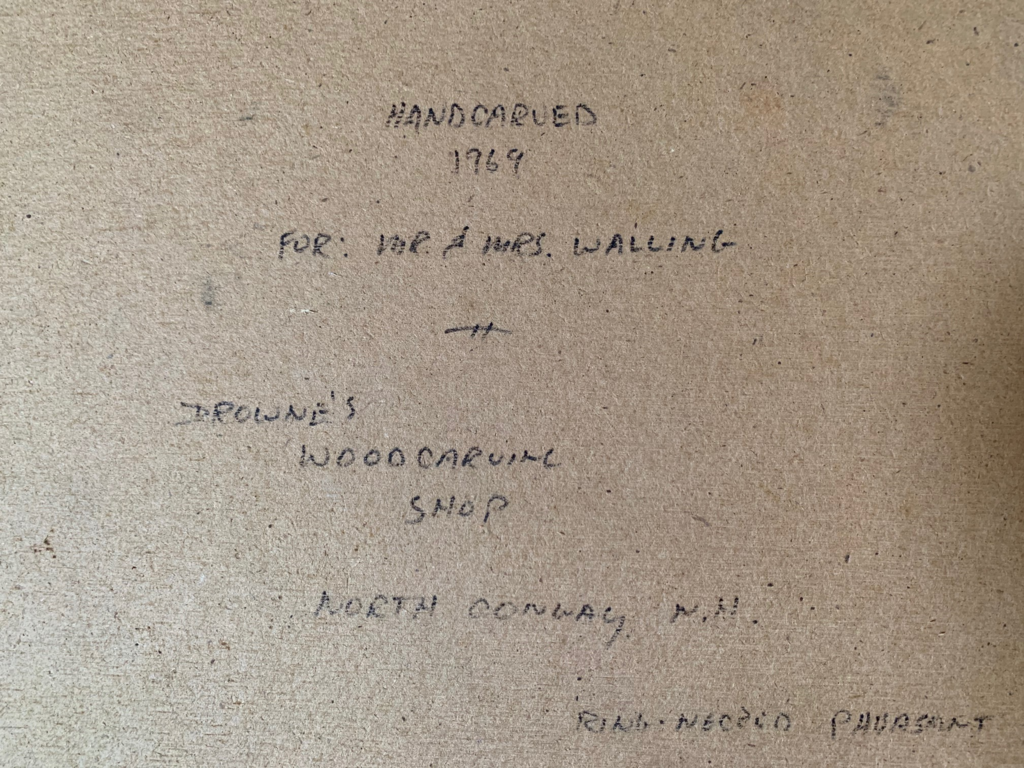 HANDCARVED
1969
FOR: MR. & MRS. WALLING
DROWNE'S
WOODCARVING
SHOP
NORTH CONWAY, N.H.
RING-NECKED PHEASANT